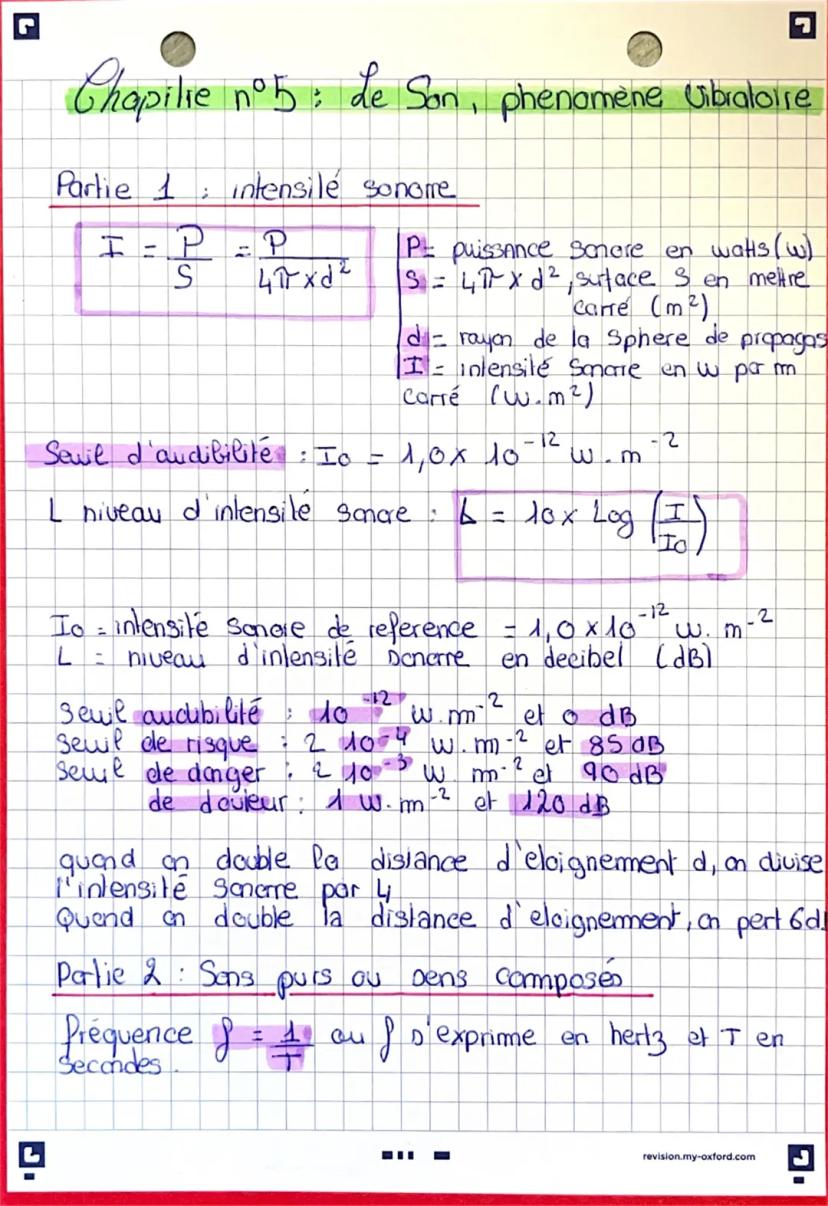 Chapitre n°5 : Le Son, phenomène vibratoire
Partie 1 : intensité sonore
I = P/S = P/(4π x d²)
P = puissance sonore en watts (w)
S = 4π x d², surface S en mettre
carré (m²)
d = rayon de la sphere de propagas
I = intensité sonore en w par m
carré (w.m²)
Seuil d'audibilité : I0 = 1,0 x 10⁻¹² w.m⁻²
L niveau d'intensité sonore : L = 10 x Log (I/I0)
I0 = intensité sonore de reference = 1,0 x 10⁻¹² w.m⁻²
L = niveau d'intensité sonore en decibel (dB)
Seuil audibilité : 10⁻¹² w.m⁻² et 0 dB
Seuil de risque : 2 10⁻⁴ w.m⁻² et 85 dB
Seuil de danger : 2 10⁻³ w m⁻² et 90 dB
de douleur : 1 w.m⁻² et 120 dB
quand on double la distance d'eloignement d, on divise
l'intensité sonore par 4
Quand on double la distance d'eloignement, on pert 6d
Partie 2 : Sons purs ou sons composés
Fréquence f = 1/T ou f s'exprime en hertz et T en
secondes.
revision.my-oxford.com